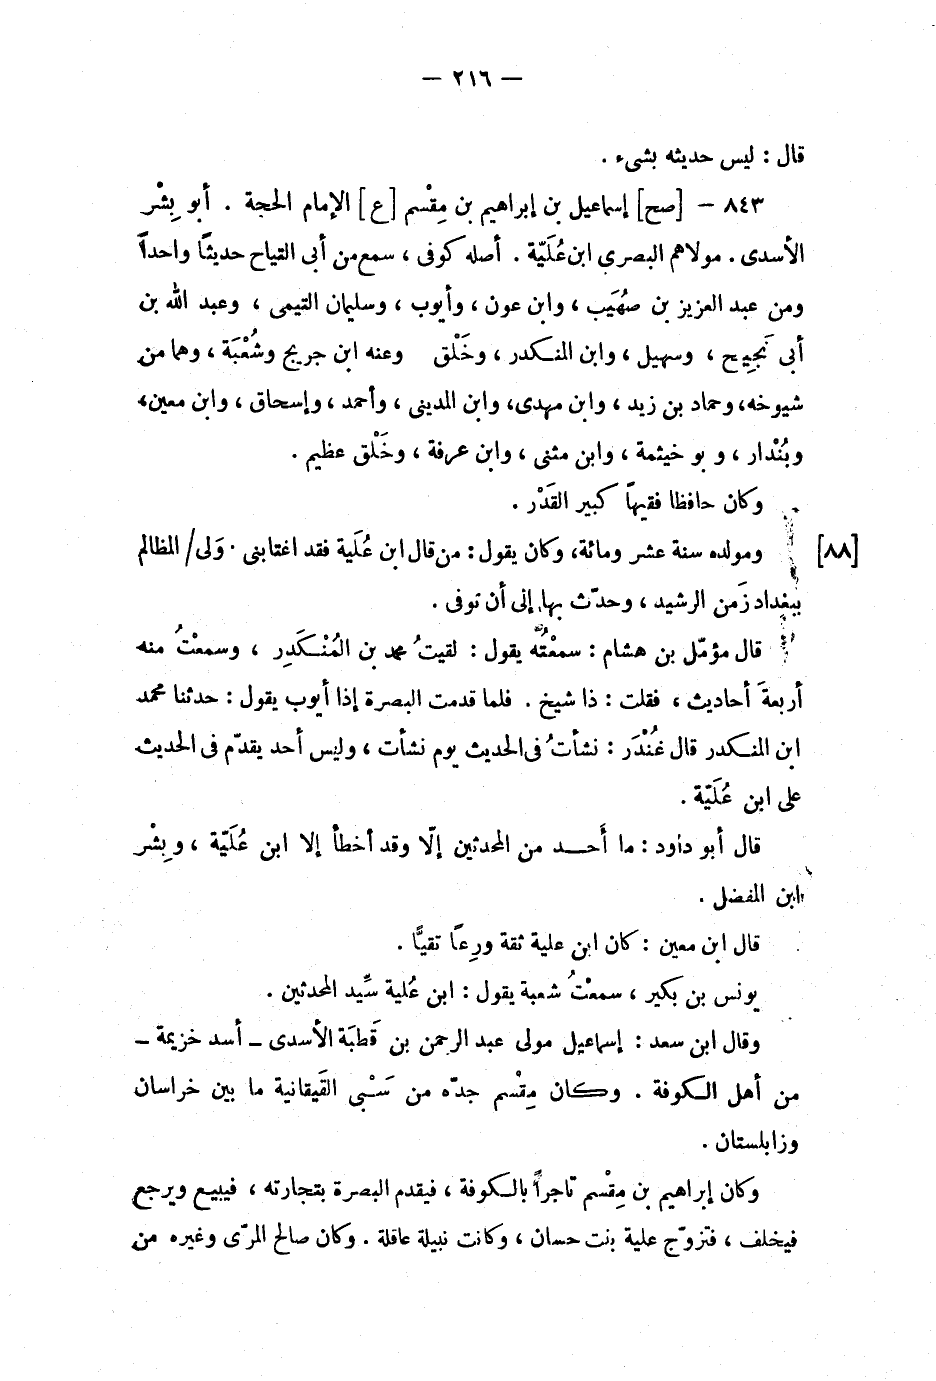 — ٢١٦ —
قال : ليس حديثه بشىء .
٨٤٣ – [صح] إسماعيل بن إبراهيم بن مِقْسم [ع] الإمام الحجة . أبو بِشْر
الأسدى . مولاهم البصرى ابن عُلَيّة . أصله كوفى ، سمع من أبى التياح حديثًا واحداً
ومن عبد العزيز بن صُهَيب ، وابن عون ، وأيوب ، وسليمان التيمى ، وعبد الله بن
أبى نَجِيح ، وسهيل ، وابن المنكدر ، وخَلْق وعنه ابن جريج وشُعْبَة ، وهما من
شيوخه، وحماد بن زيد ، وابن مهدى، وابن المدينى ، وأحمد ، وإسحاق ، وابن معين،
وبُنْدار ، و بو خيثمة ، وابن مثنى ، وابن عرفة ، وخَلْق عظيم .
وكان حافظا فقيهاً كبير القَدْر .
[٨٨] ومولده سنة عشر ومائة، وكان يقول : من قال ابن عُلَية فقد اغتابنى . وَلى/ المظالم
ببغداد زَمن الرشيد ، وحدّث بها إلى أن توفى .
قال مؤمّل بن هشام : سمعْتُه يقول : لقيتُ محمد بن المُنْكَدِر ، وسمعتُ منه
أربعةَ أحاديث ، فقلت : ذا شيخ . فلما قدمت البصرة إذا أيوب يقول : حدثنا محمد
ابن المنكدر قال غُنْدَر : نشأتُ فى الحديث يوم نشأت ، وليس أحد يقدّم فى الحديث
على ابن عُلَيّة .
قال أبو داود : ما أَحد من المحدثين إلّا وقد أخطأ إلا ابن عُلَيّة ، وبِشْر
ابن المفضل .
قال ابن معين : كان ابن علية ثقة ورِعًا تقيًّا .
يونس بن بكير ، سمعْتُ شعبة يقول : ابن عُلية سيِّد المحدثين .
وقال ابن سعد : إسماعيل مولى عبد الرحمن بن قَطبَة الأسدى – أسد خزيمة –
من أهل الكوفة . وكان مِقْسم جدّه من سَبْى القَيقانية ما بين خراسان
وزابلستان .
وكان إبراهيم بن مِقْسم تاجراً بالكوفة ، فيقدم البصرة بتجارته ، فيبيع ويرجع
فيخلف ، فتزوّج علية بنت حسان ، وكانت نبيلة عاقلة . وكان صالح المرّى وغيره من